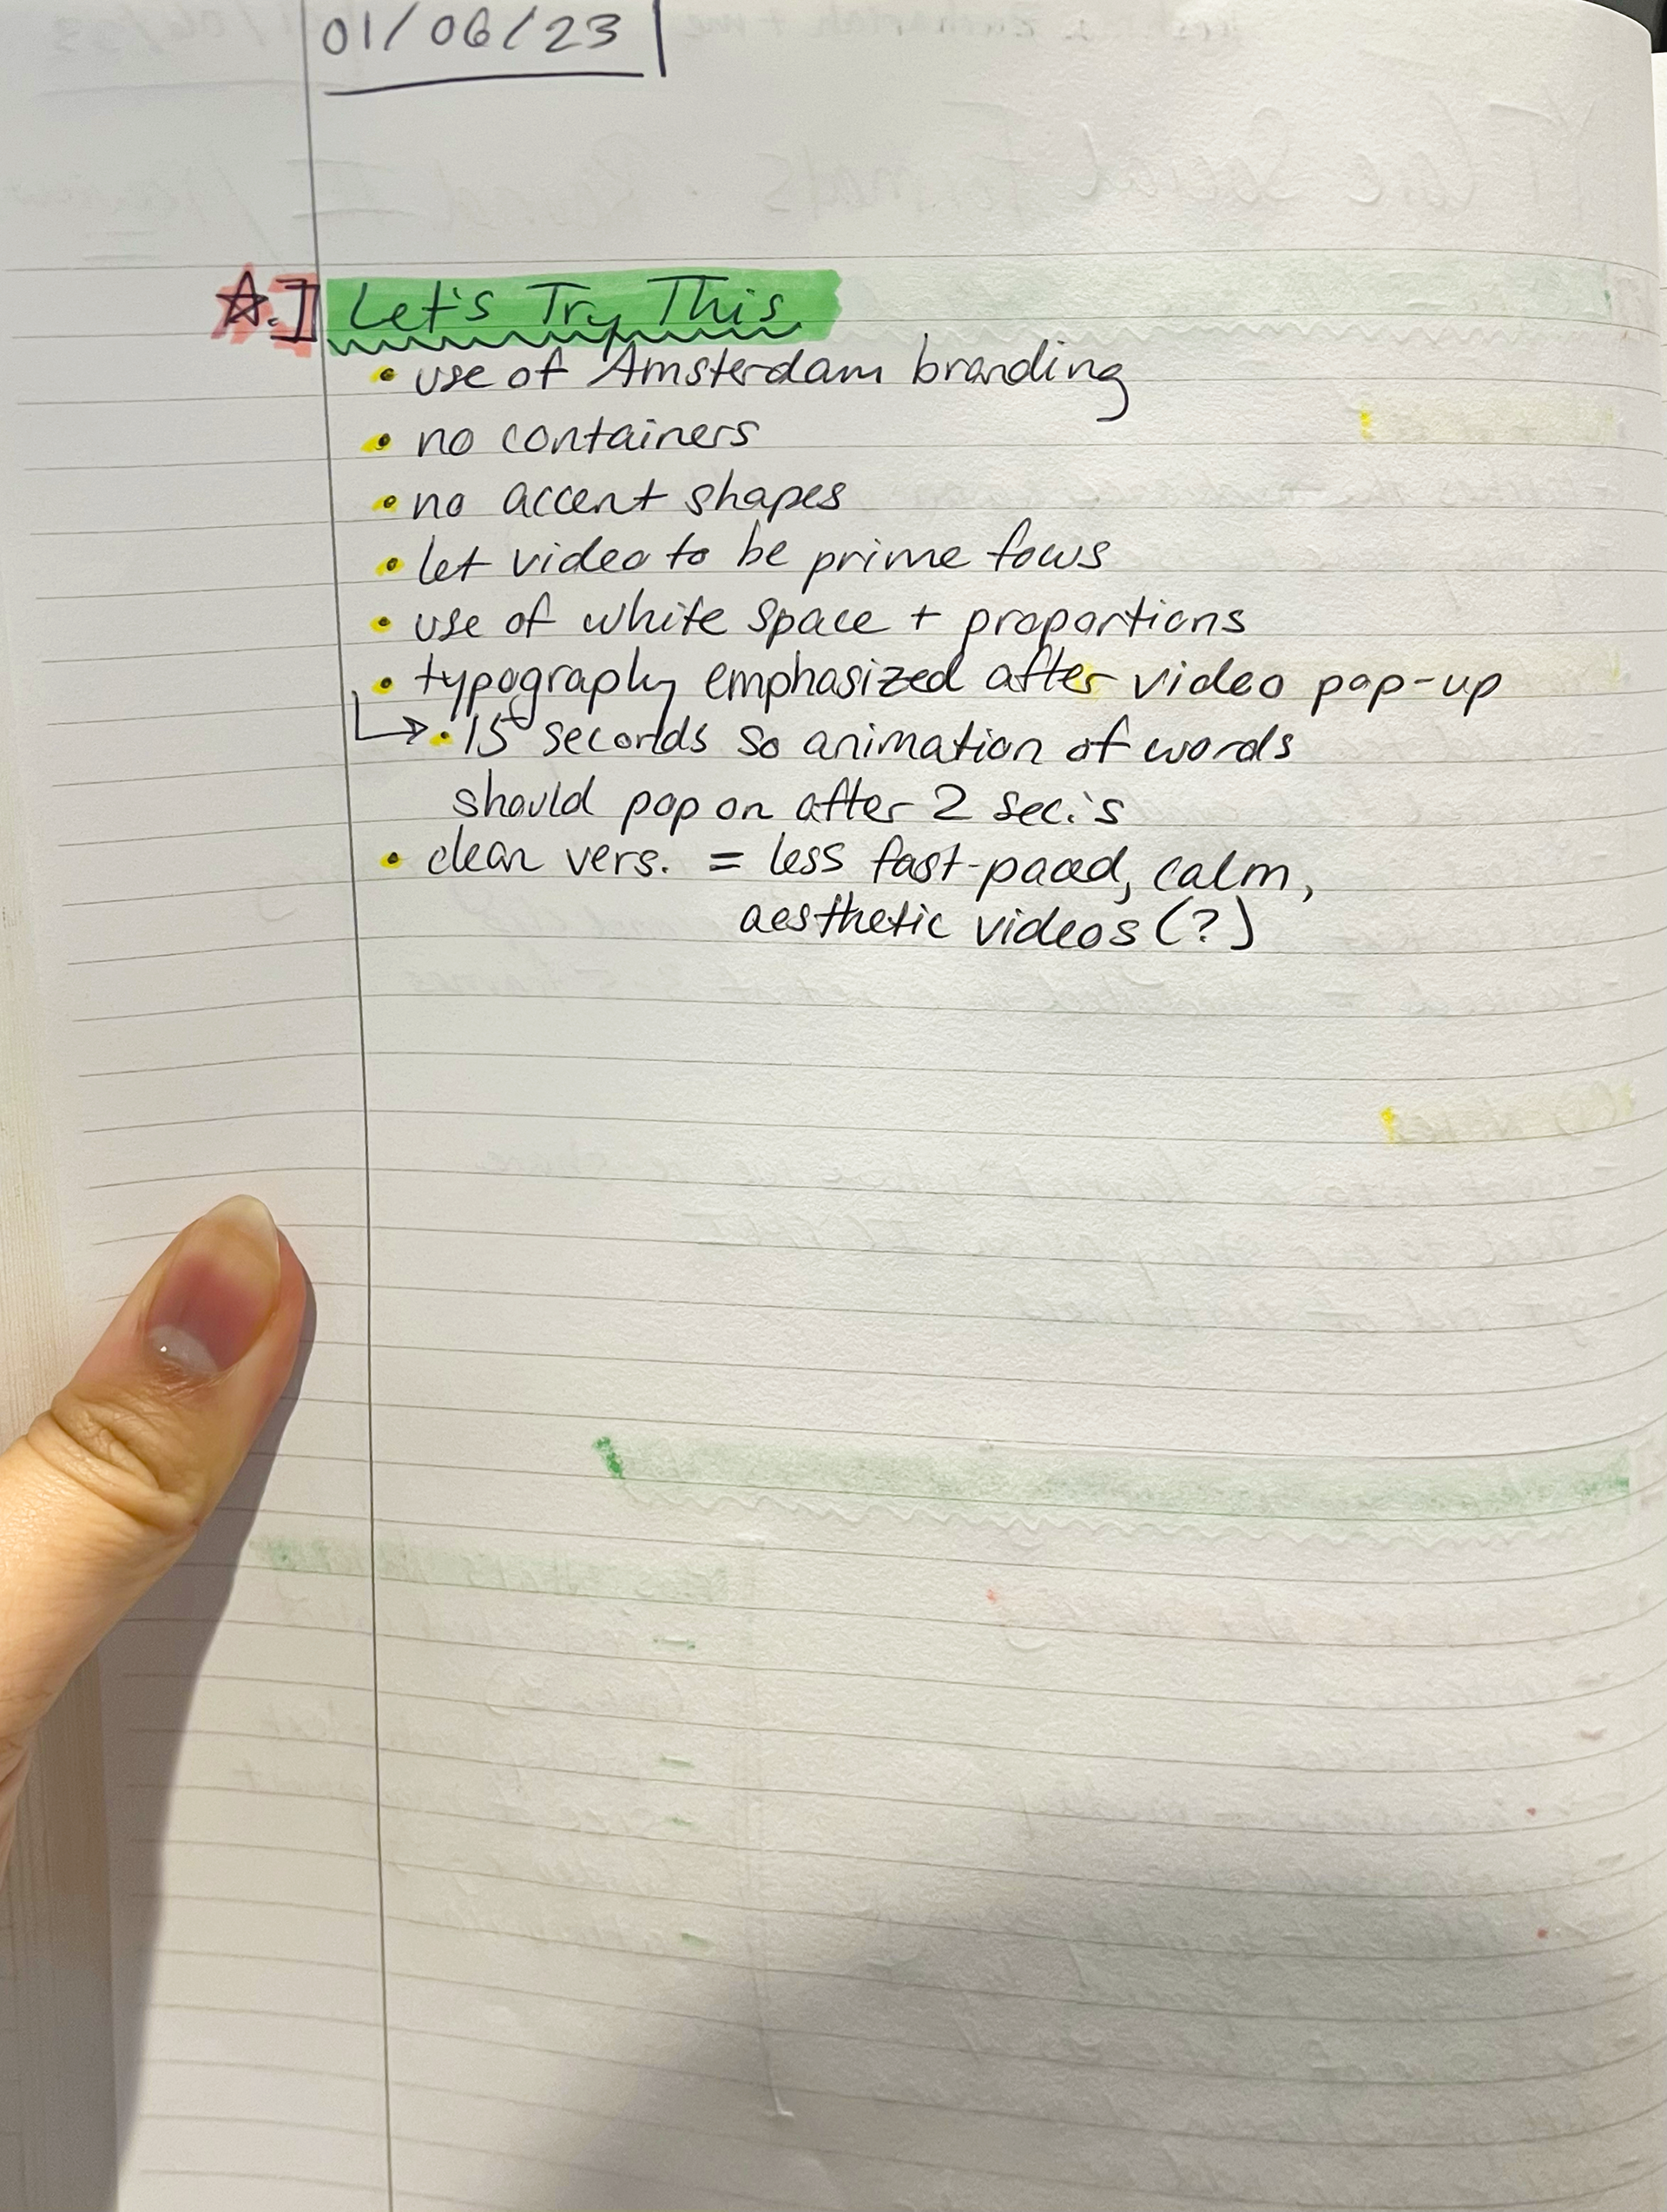 01/06/23
☆.] Let's Try This
• use of Amsterdam branding
• no containers
• no accent shapes
• let video to be prime focus
• use of white space + proportions
• typography emphasized after video pop-up
↳ • 15 seconds so animation of words
should pop on after 2 sec.'s
• clean vers. = less fast-paced, calm,
aesthetic videos (?)